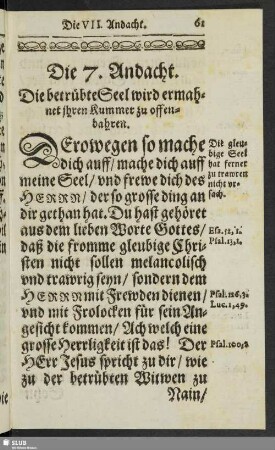 Die VII. Andacht. 61
Die 7. Andacht.
Die betrübte Seel wird ermah-
net jhren Kummer zu offen-
bahren.
DErowegen so mache
dich auff / mache dich auff
meine Seel / vnd frewe dich des
HERRN / der so grosse ding an
dir gethan hat. Du hast gehöret
aus dem lieben Worte Gottes /
daß die fromme gleubige Chri-
sten nicht sollen melancolisch
vnd trawrig seyn / sondern dem
HERRN mit Frewden dienen /
vnd mit Frolocken für sein An-
gesicht kommen / Ach welch eine
grosse Herrligkeit ist das! Der
HErr Jesus spricht zu dir / wie
zu der betrübten Witwen zu
Nain /
Die gleu-
bige Seel
hat ferner
zu trawren
nicht vr-
sach.
Esa. 52, 1.
Psal. 13, 1.
Psal. 126, 3.
Luc. 1, 49.
Psal. 100, 2
SLUB